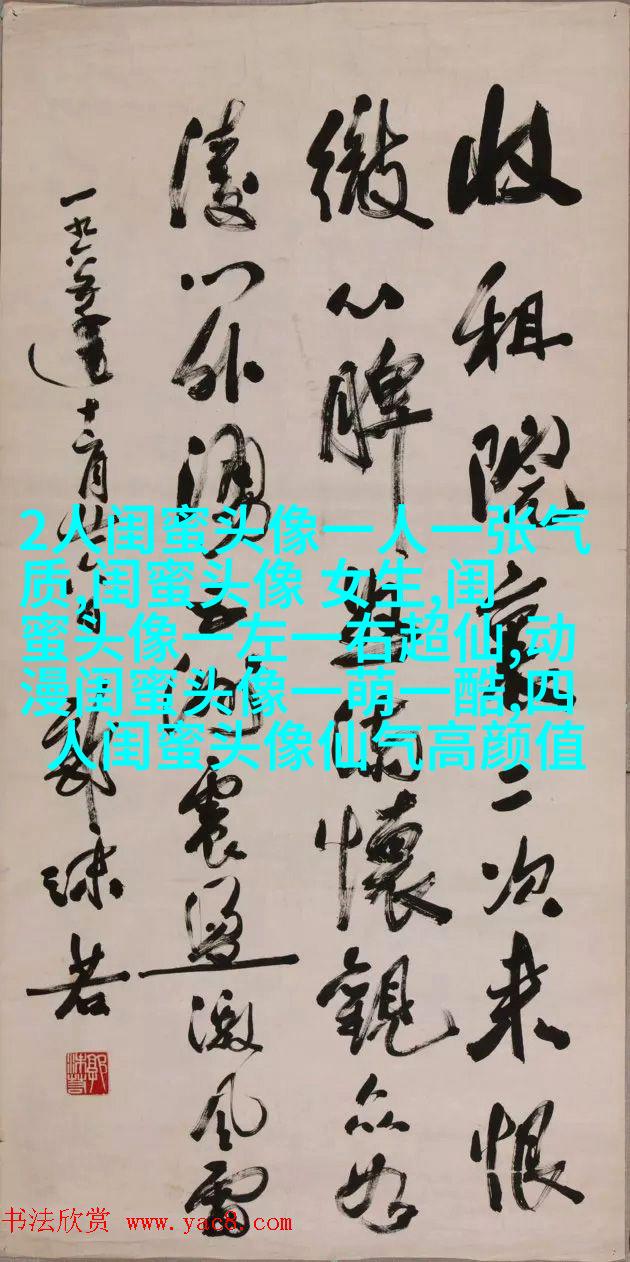 收租院 二次来恨
徹心脾 滿懷觀众如
濤门外湧 震盪激风雷
一九六 十二月 郭沫若
郭沫若
2人闺蜜头像一人一张气
质,闺蜜头像 女生,闺
蜜头像一左一右超仙,动
漫闺蜜头像一萌一酷,四
人闺蜜头像仙气高颜值
书法欣赏 www.yac8.com